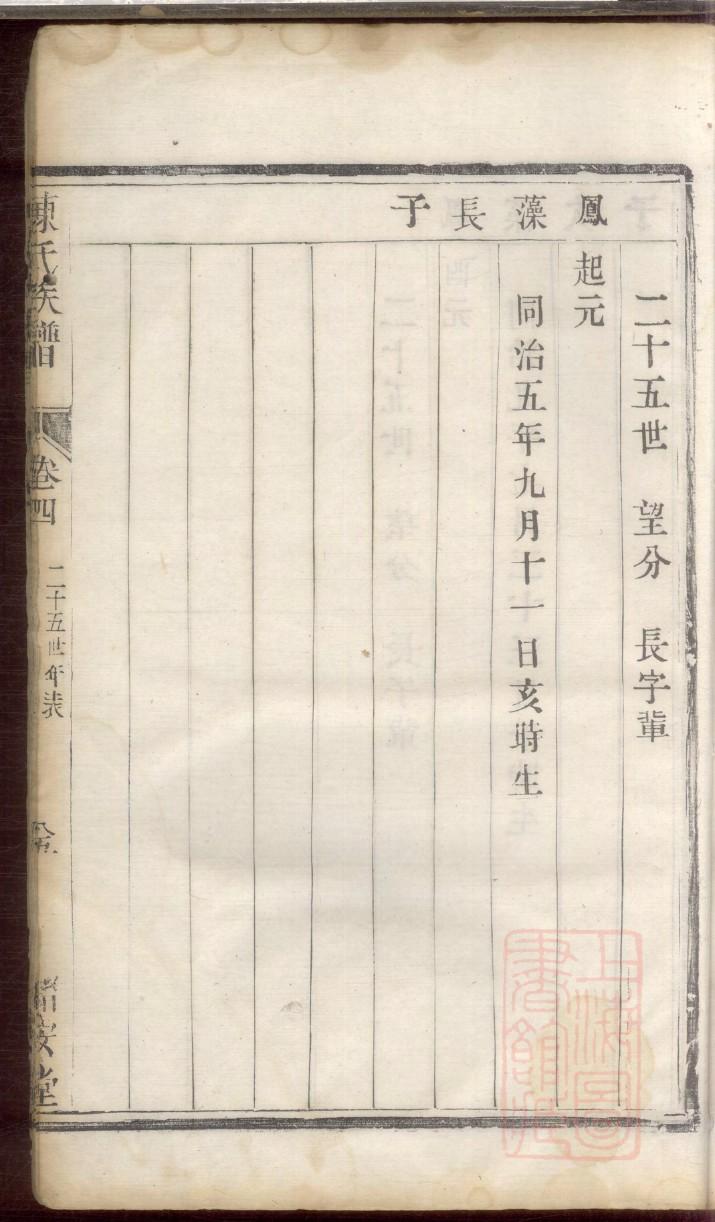 二十五世 望分 長字輩
鳳藻長子
起元
同治五年九月十一日亥時生
陳氏族譜
卷四
二十五世年表
堂
上海圖書館藏